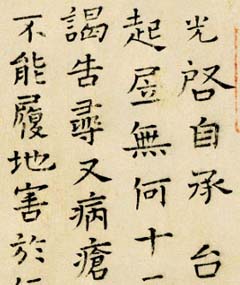 光啓自承台
起㞐無何十
謁告尋又病瘡
不能履地害於